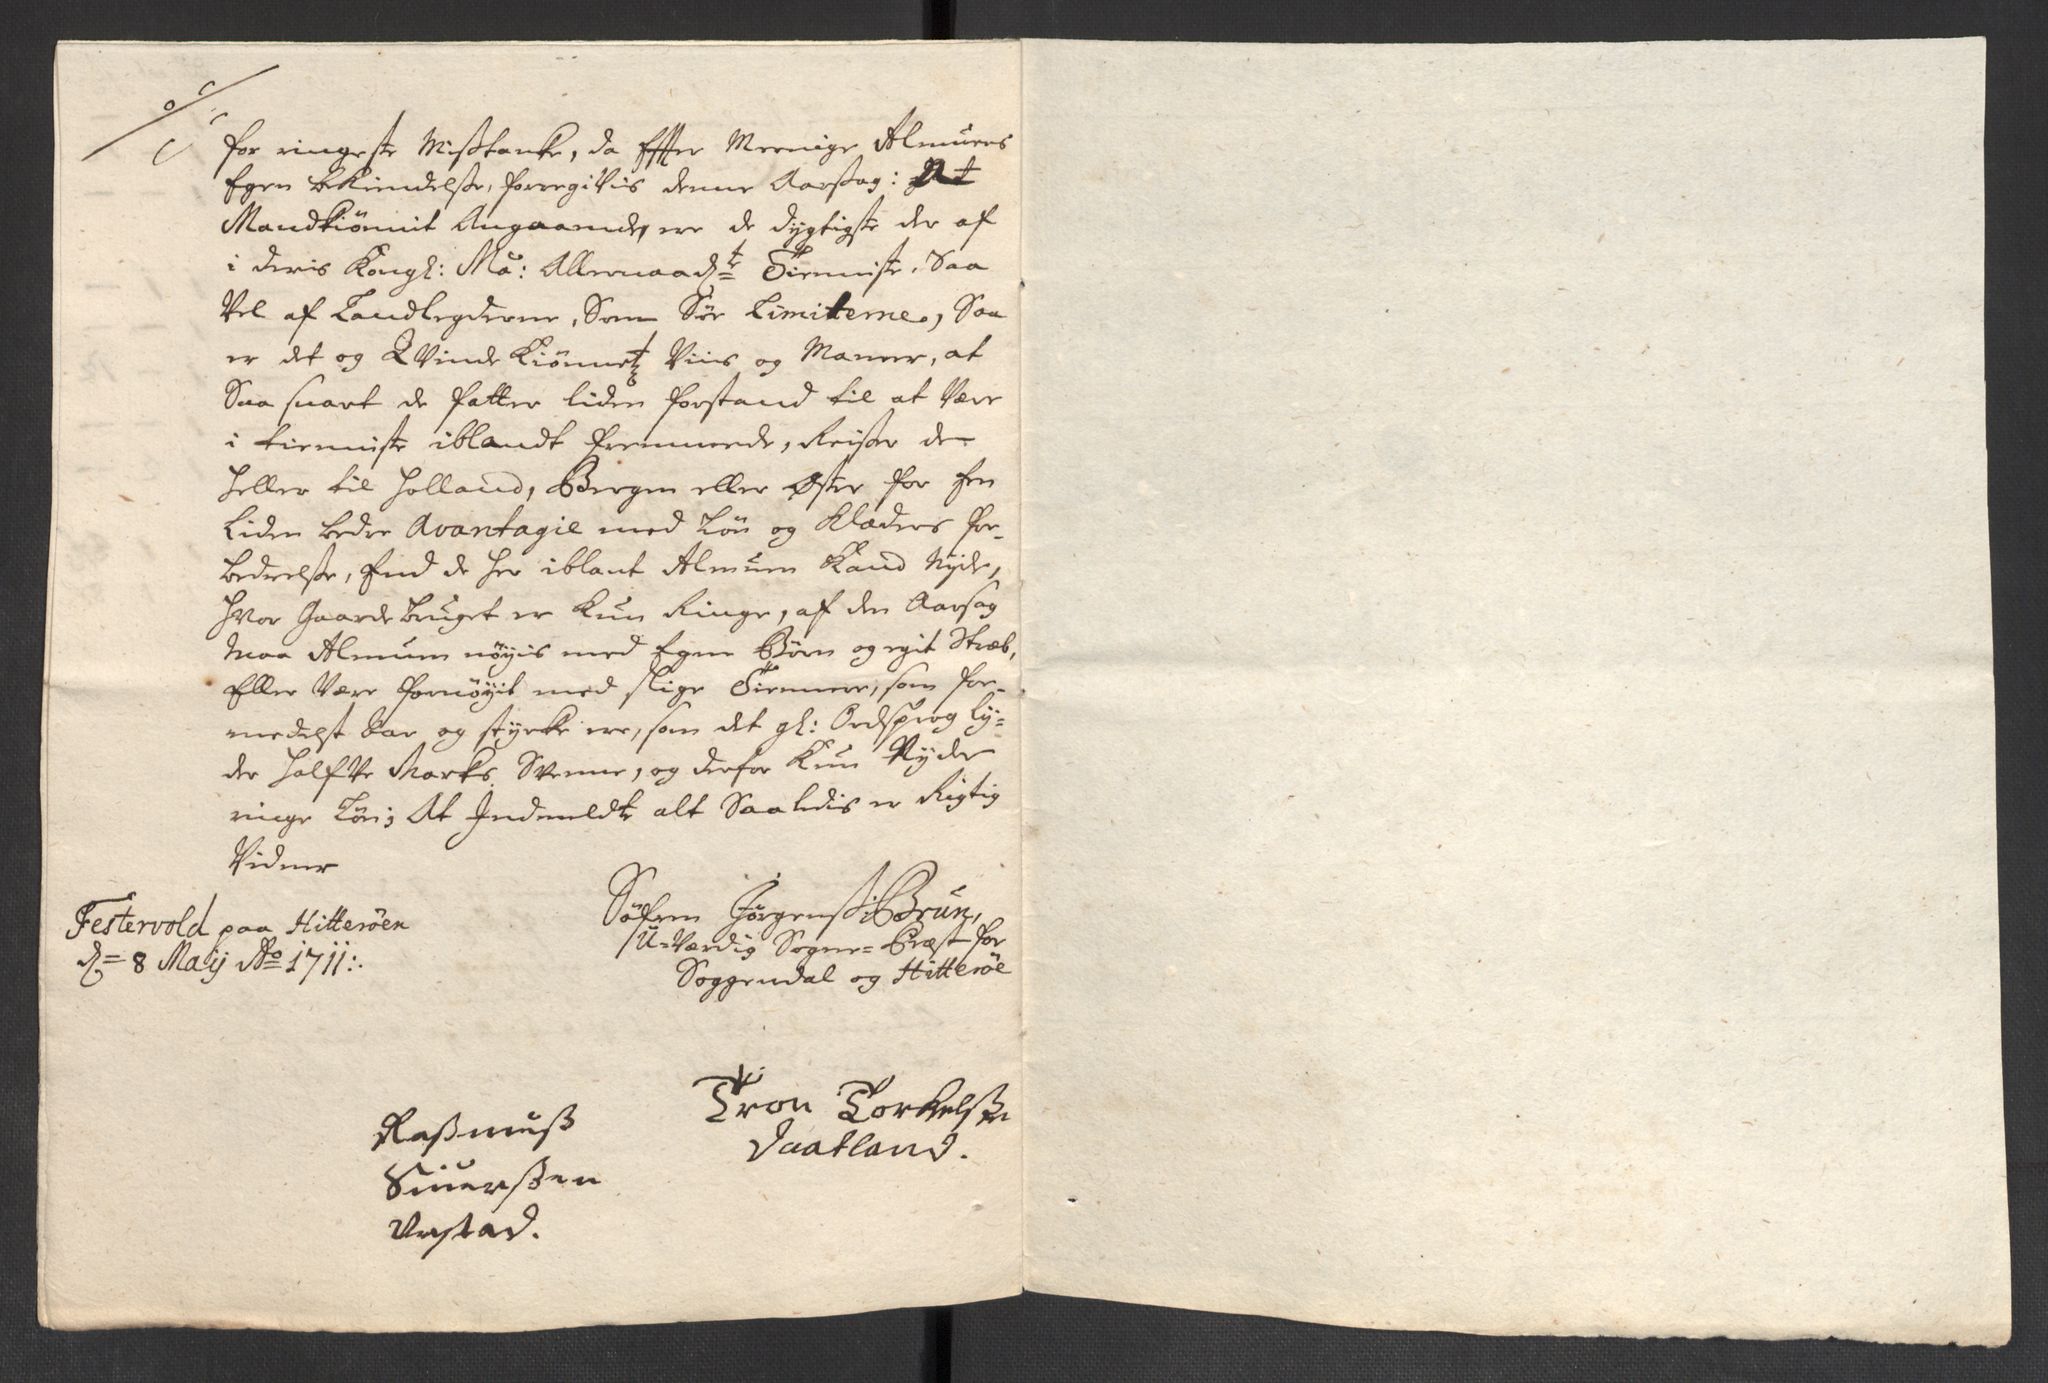 for ringeste Mißtanke, da Effter Meenige Almues
Egen bekiendelse, foregiviis denne Aarsag: At
Mandkiønnit Angaaende, ere de dygtigste der af
i deris Kongl: Ma: Allernaadte Tienniste, Saa
Vel af Landlegderne, Som Søe Limiterne, Saa
er det og Qvinde Kiønnetz Viis og Maneer, at
Saa snart de fatter liden forstand til at Være
i tienniste iblandt fremmede, Reiser de
heller til Holland, Bergen eller Øster for En
liden bedre Avantagie med Løn og Klæders for-
bedrelse, End de her iblant Almuen Kand Nyde,
hvor Gaarde bruget er Kun Ringe, af den Aarsag
maa Almuen nøyis med Egne Børn og egit Stræb,
Eller Være fornøyit med slige Tiennere, som for-
medelst Aar og styrke ere, som det gl: Ordsprog ly-
der halfve Marks Svenne, og derfor Kun Nyder
ringe Løn; At Indmeldte alt Saaledis er Rigtig
Vidner
Festervold paa Hitterøen
d= 8 Maij Ao 1711:.
Søfren Jørgenß: Brun,
U-Værdig Sogne-Præst for
Soggendal og Hitterøe
Tron Torkelßen
Daatland.
Raßmuß
Siuerßen
Urstad.